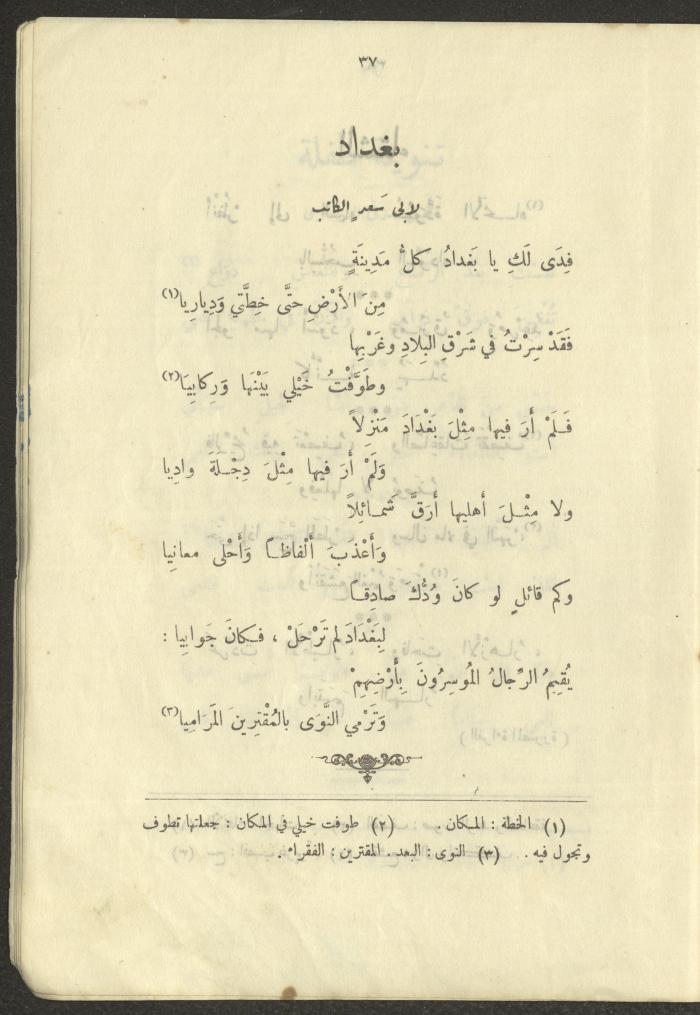 ٣٧
بغداد
لابى سَعدٍ الكاتب
فِدَى لَكِ يا بَغدادُ كلُّ مَدِينَةٍ
مِنَ الأَرْضِ حتَّى خِطَّتي وَدِيارِيا(١)
فَقَدْ سِرْتُ في شَرْقِ البِلادِ وغَرْبِها
وطَوَّفْتُ خَيْلي بَيْنَها وَرِكابِيَا(٢)
فَلَمْ أَرَ فيها مِثْلَ بَغْدَادَ مَنْزِلاً
وَلَمْ أَرَ فيها مِثْلَ دِجْلَةَ وادِيا
ولا مِثْلَ أهليها أرَقَّ شَمائِلاً
وَأَعْذَبَ أَلْفاظاً وَأَحْلى معانِيا
وكم قائلٍ لو كانَ وُدُّكَ صادِقاً
لِبَغْدَادَ لم تَرْحَلْ ، فكانَ جَوابِيا :
يُقِيمُ الرِّجالُ المُوسِرُونَ بِأَرْضِهِمْ
وَتَرْمي النَّوَى بالمُقْتِرِينَ المَرَامِيا(٣)
(١) الخطة : المكان . (٢) طوفت خيلي في المكان : جعلتها تطوف
وتجول فيه . (٣) النوى : البعد . المقترين : الفقراء .